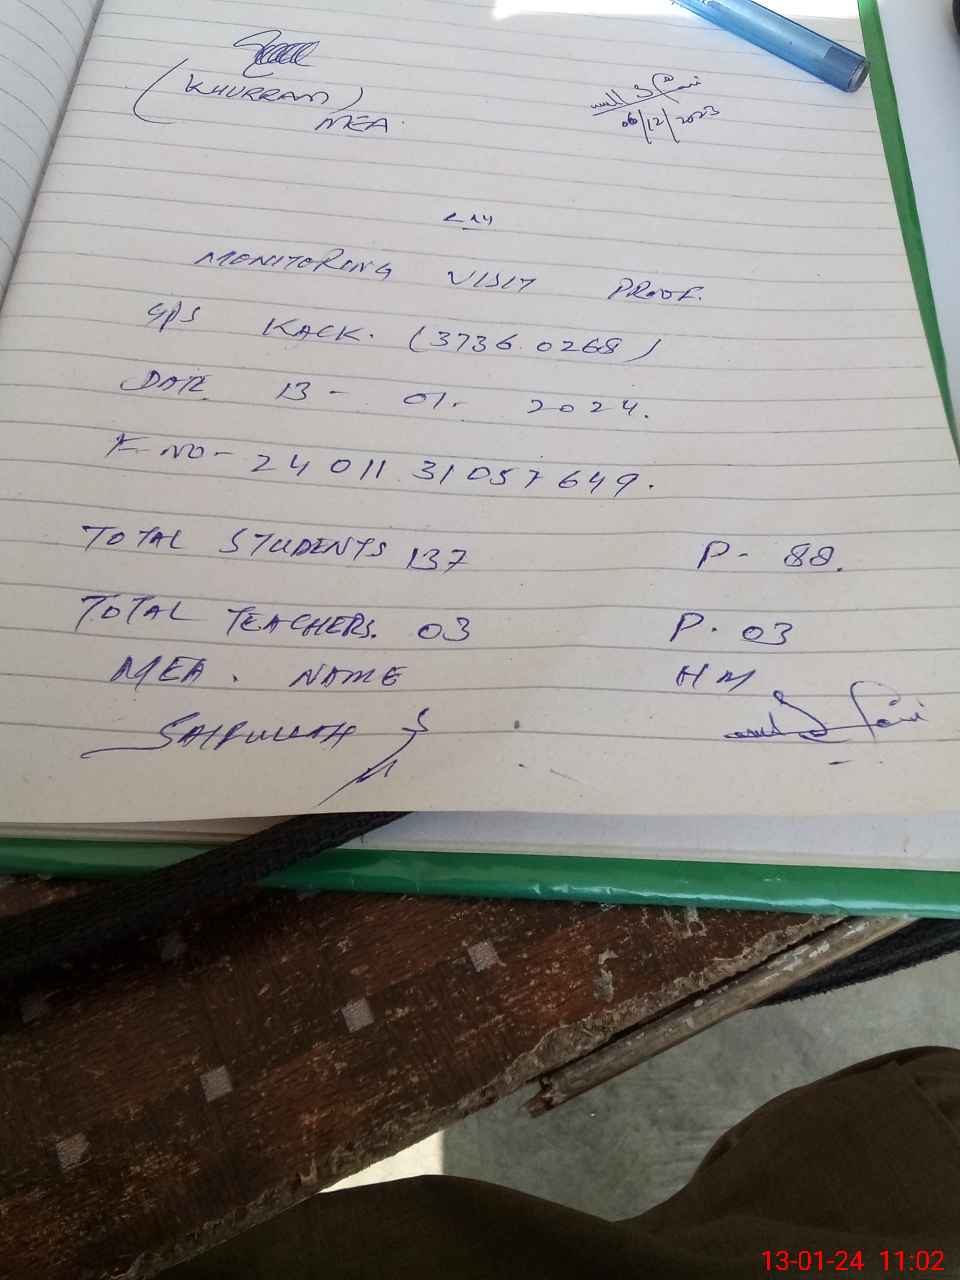 (KHURRAM)
MEA.
06/12/2023
MONITORING VISIT PROOF.
GPS KACK. (3736.0268)
DATE 13 - 01 - 2024.
F. NO - 24011 31057649.
TOTAL STUDENTS 137 P - 88.
TOTAL TEACHERS. 03 P. 03
MEA. NAME HM
SAIFULLAH
13-01-24 11:02